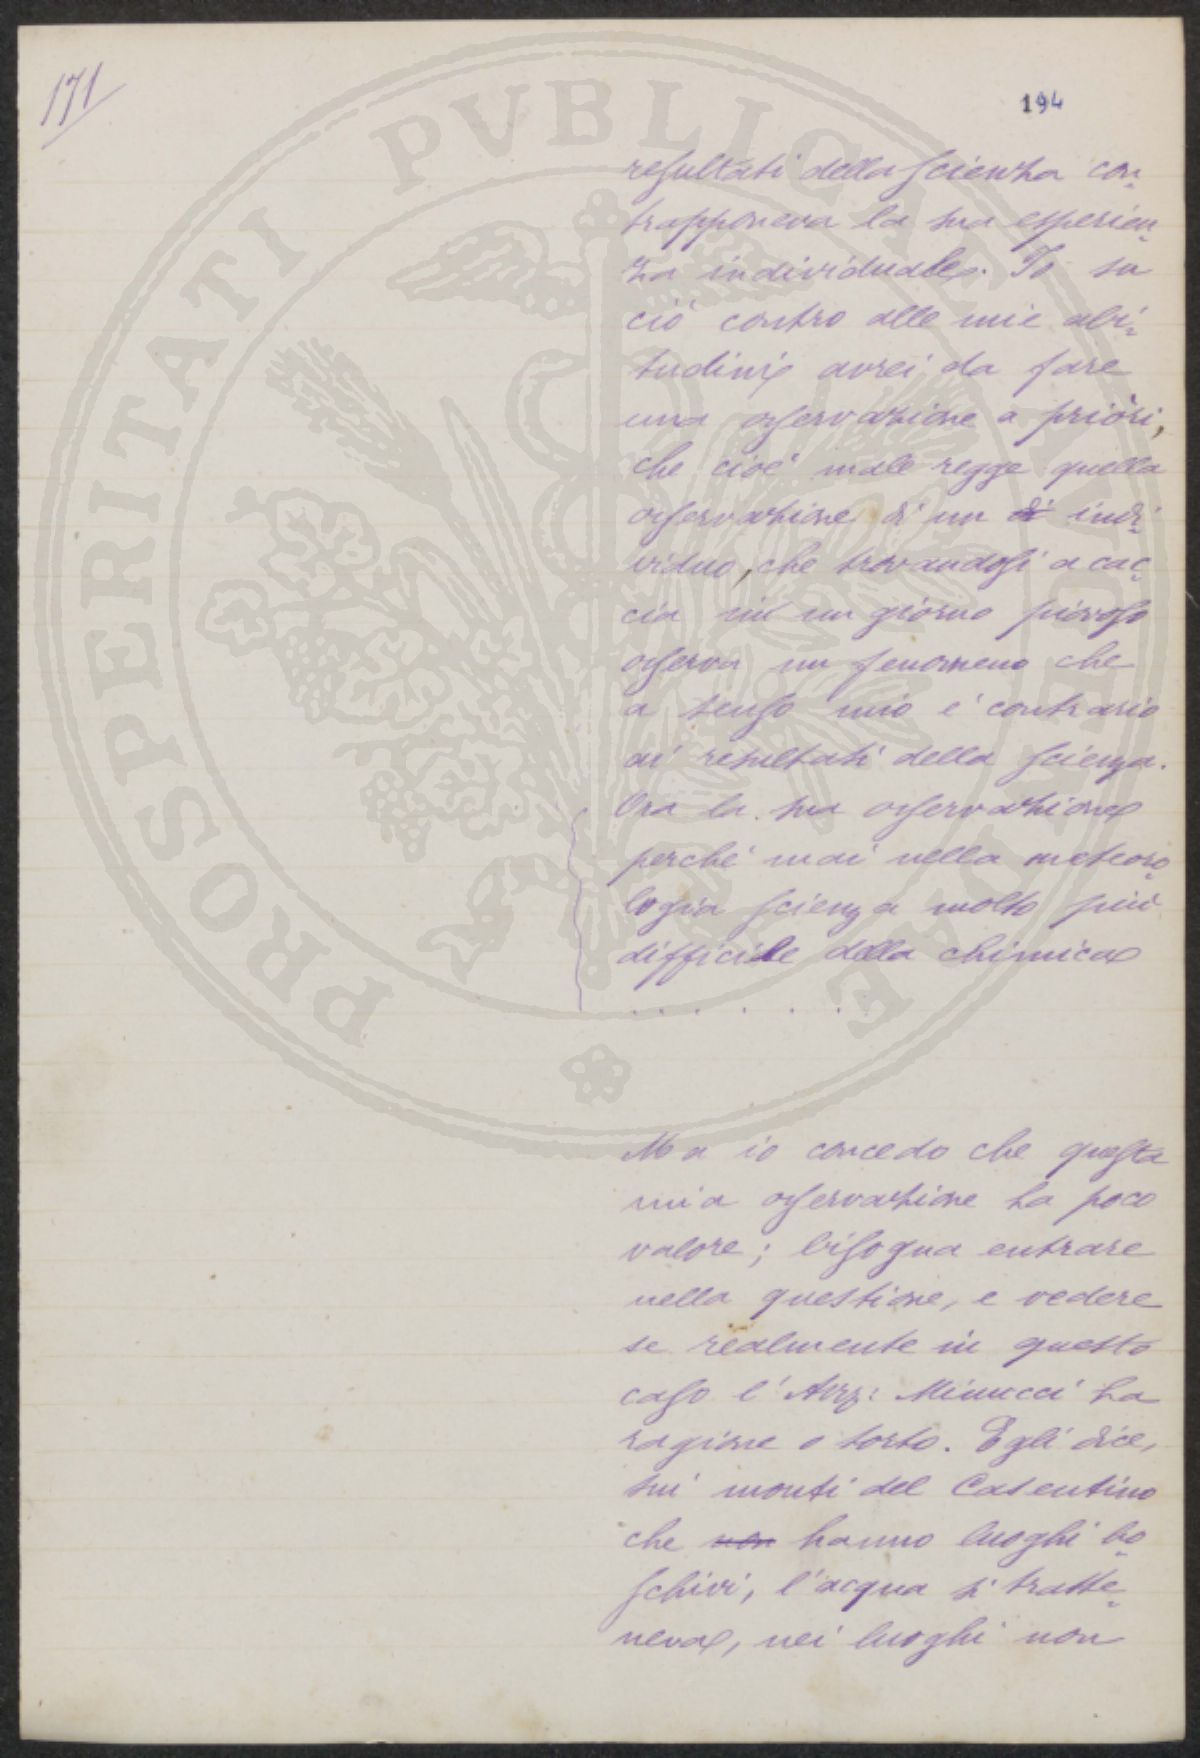 171
194
resultati della Scienza con-
trapponeva la sua esperien-
za individuale. Io su
ciò contro alle mie abi-
tudini avrei da fare
una osservazione a priòri,
che cioè male regge quella
osservazione di un di indi-
viduo, che trovandosi a cac-
cia in un giorno piovoso
osserva un fenomeno che
a senso mio é contrario
ai resultati della scienza.
Ora la sua osservazione
perché mai nella meteoro-
logia scienza molto più
difficile della chimica
. . . . . . .
Ma io concedo che questa
mia osservazione ha poco
valore; bisogna entrare
nella questione, e vedere
se realmente in questo
caso l'Avv: Minucci ha
ragione o torto. Egli dice,
sui monti del Casentino
che non hanno luoghi bo-
schivi, l'acqua si tratte-
neva, nei luoghi non
PROSPERITATI PVBLICAE AVGENDAE